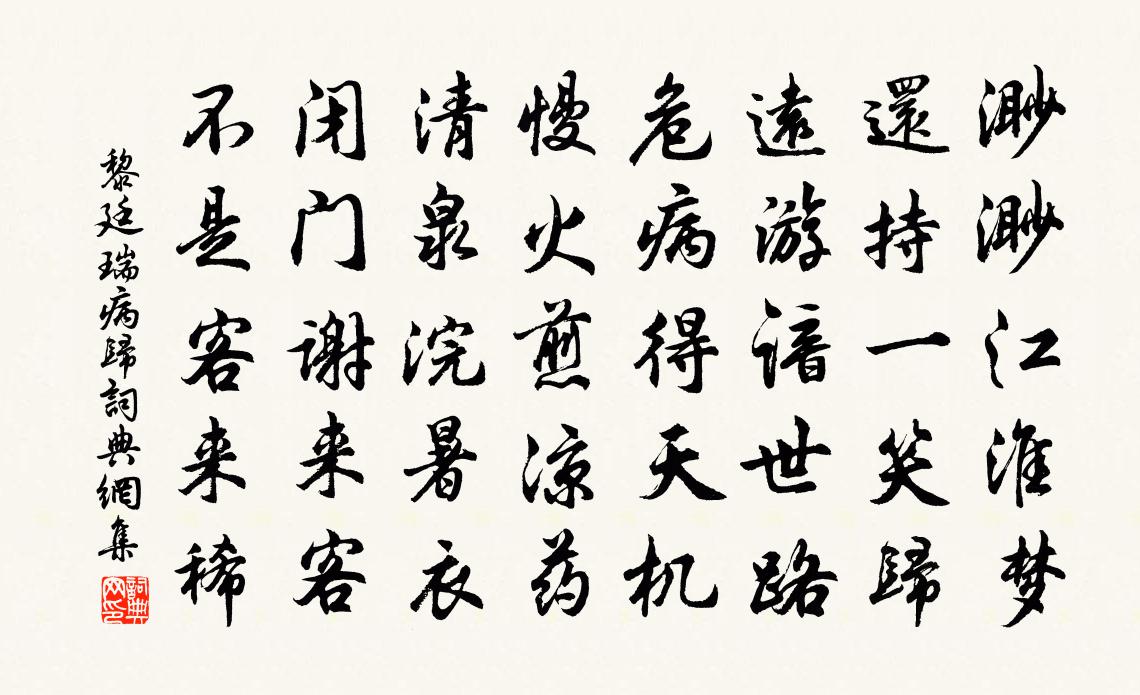 渺渺江淮梦
還持一笑歸
遠游谙世路
危病得天机
慢火煎凉药
清泉浣暑衣
闭门谢来客
不是客来稀
黎廷瑞病歸詞典網集
詞典网印